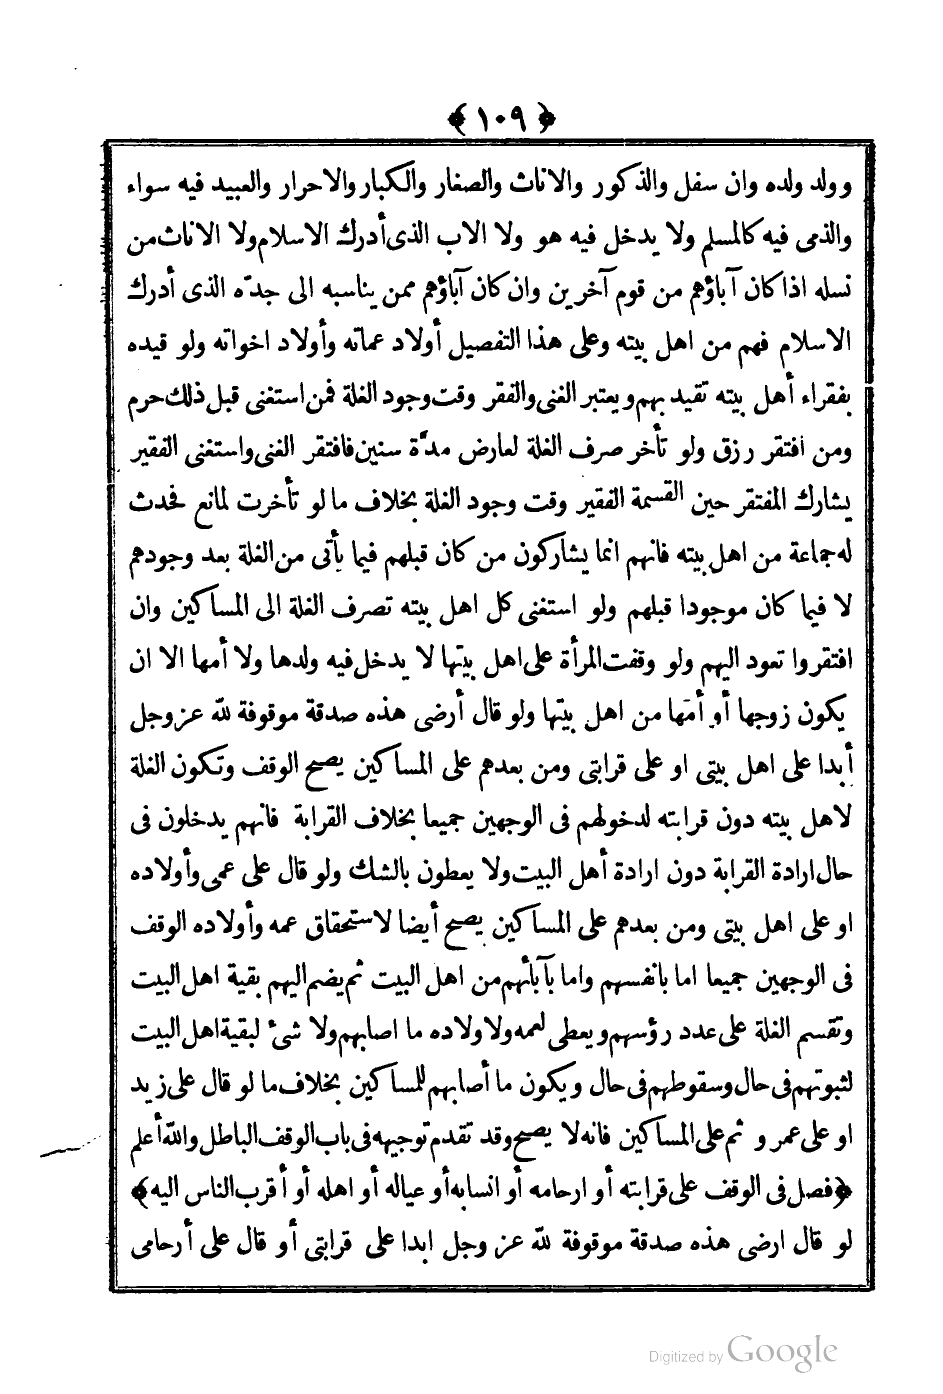 ﴿ ١٠٩ ﴾
وولد ولده وان سفل والذكور والاناث والصغار والكبار والاحرار والعبيد فيه سواء
والذمى فيه كالمسلم ولا يدخل فيه هو ولا الاب الذى أدرك الاسلام ولا الاناث من
نسله اذا كان آباؤهم من قوم آخرين وان كان آباؤهم ممن يناسبه الى جدّه الذى أدرك
الاسلام فهم من اهل بيته وعلى هذا التفصيل أولاد عماته وأولاد اخواته ولو قيده
بفقراء أهل بيته تقيد بهم ويعتبر الغنى والفقر وقت وجود الغلة فمن استغنى قبل ذلك حرم
ومن افتقر رزق ولو تأخر صرف الغلة لعارض مدّة سنين فافتقر الغنى واستغنى الفقير
يشارك المفتقر حين القسمة الفقير وقت وجود الغلة بخلاف ما لو تأخرت لمانع فحدث
له جماعة من اهل بيته فانهم انما يشاركون من كان قبلهم فيما يأتى من الغلة بعد وجودهم
لا فيما كان موجودا قبلهم ولو استغنى كل اهل بيته تصرف الغلة الى المساكين وان
افتقروا تعود اليهم ولو وقفت المرأة على اهل بيتها لا يدخل فيه ولدها ولا أمها الا ان
يكون زوجها أو أمها من اهل بيتها ولو قال أرضى هذه صدقة موقوفة لله عز وجل
أبدا على اهل بيتى او على قرابتى ومن بعدهم على المساكين يصح الوقف وتكون الغلة
لاهل بيته دون قرابته لدخولهم فى الوجهين جميعا بخلاف القرابة فانهم يدخلون فى
حال ارادة القرابة دون ارادة أهل البيت ولا يعطون بالشك ولو قال على عمى وأولاده
او على اهل بيتى ومن بعدهم على المساكين يصح أيضا لاستحقاق عمه وأولاده الوقف
فى الوجهين جميعا اما بانفسهم واما بآبائهم من اهل البيت ثم يضم اليهم بقية اهل البيت
وتقسم الغلة على عدد رؤسهم ويعطى لعمه ولاولاده ما اصابهم ولا شئ لبقية اهل البيت
لثبوتهم فى حال وسقوطهم فى حال ويكون ما أصابهم للمساكين بخلاف ما لو قال على زيد
او على عمرو ثم على المساكين فانه لا يصح وقد تقدم توجيهه فى باب الوقف الباطل والله أعلم
﴿فصل فى الوقف على قرابته أو ارحامه أو انسابه أو عياله أو اهله أو أقرب الناس اليه﴾
لو قال ارضى هذه صدقة موقوفة لله عز وجل ابدا على قرابتى أو قال على أرحامى
Digitized by Google